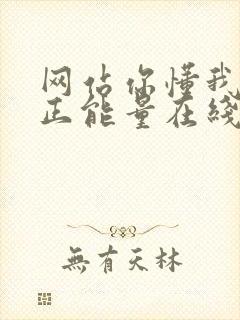 网站你懂我
正能量在线
無有天林